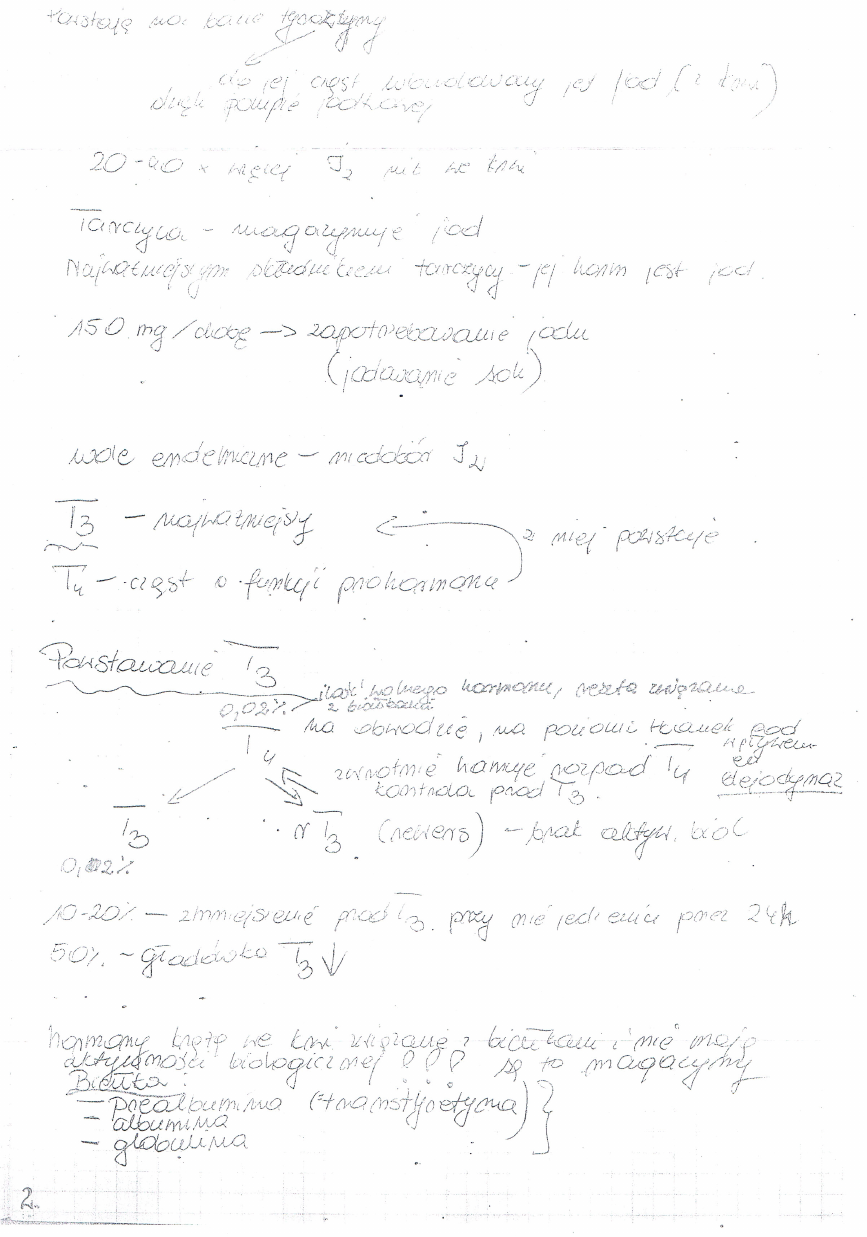 Powstają na bazie tyrozyny
do jej cząst wbudowany jest jod (z krwi)
dzięki pompie jodkowej
20-40 x więcej J2 niż we krwi
Tarczyca - magazynuje jod
Najważniejszym składnikiem tarczycy - jej horm jest jod.
150 mg/dobę -> zapotrzebowanie jodu
(jodowanie soli)
wole endemiczne - niedobór J2
T3 - najważniejszy
z niej powstaje
T4 - cząst o funkcji prohormonu
Powstawanie T3
0,02% ilość wolnego hormonu, reszta związana
z białkami
T4 na obwodzie, na poziomi tkanek pod
wpływem
zwrotnie hamuje rozpad T4 dejodynaz
kontrola prod T3.
T3 rT3 (rewers) - brak aktyw. biol
0,02%
10-20% - zmniejszenie prod T3. przy nie jedzeniu przez 24h
50% - głodówka T3 ↓
hormony krążą we krwi związane z białkami i nie mają
aktywności biologicznej !!! są to magazyny
Białka:
- prealbumina (transtyretyna)
- albumina
- globulina
2.